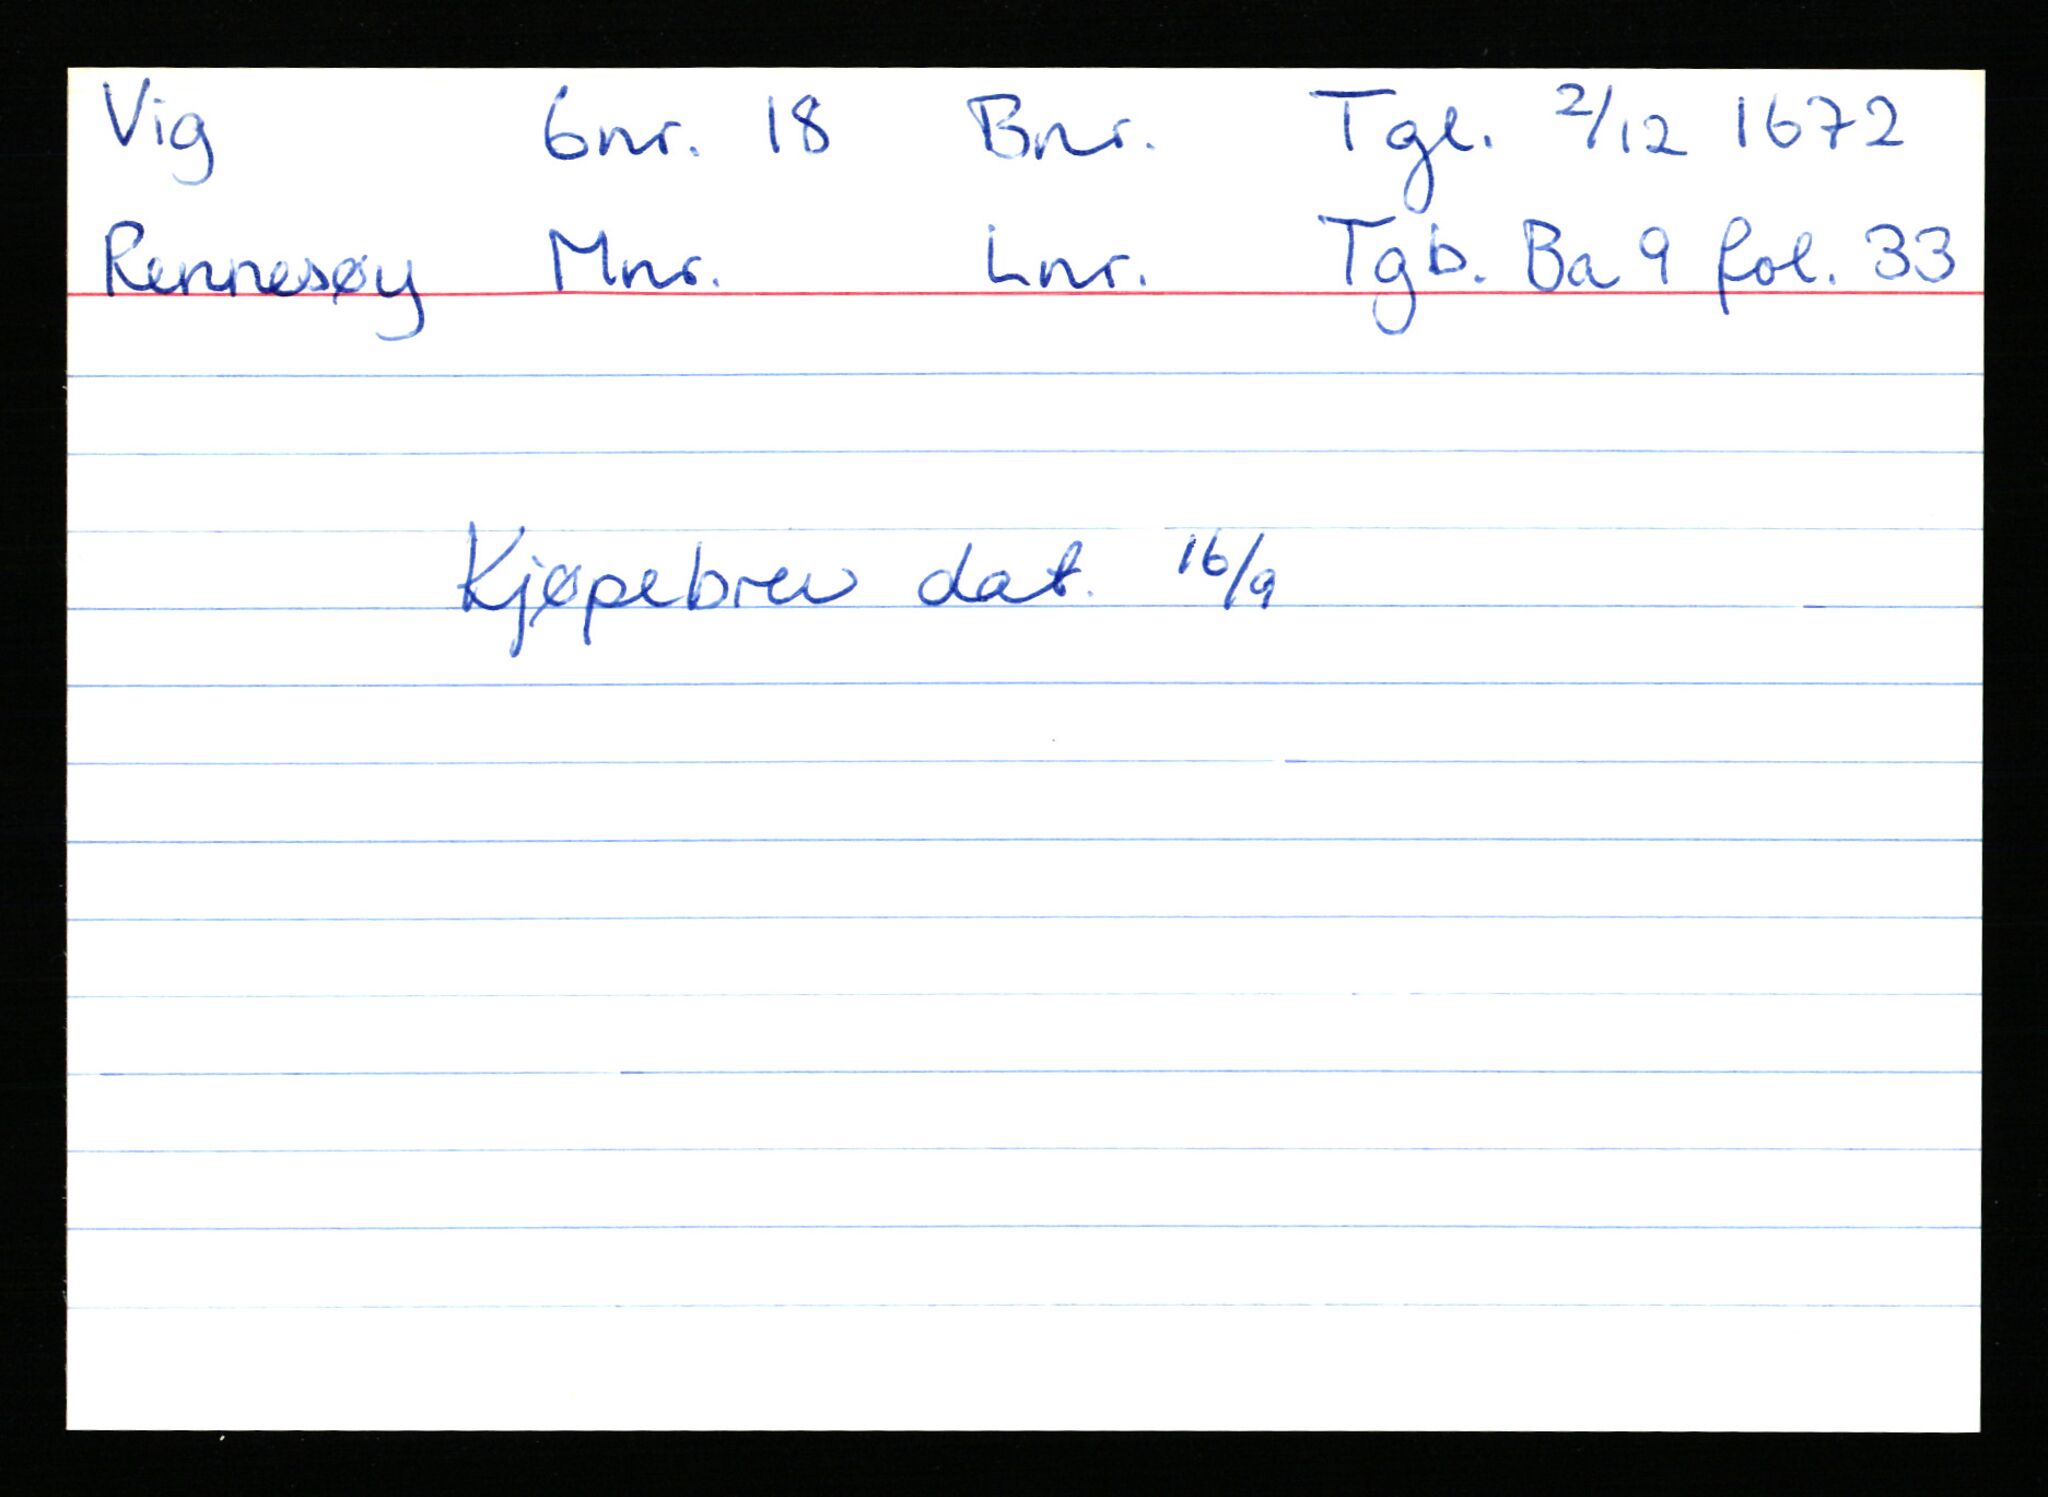 Vig Gnr. 18 Bnr. Tgl. 2/12 1672
Rennesøy Mnr. Lnr. Tgb. Ba 9 fol. 33
Kjøpebrev dat. 16/9